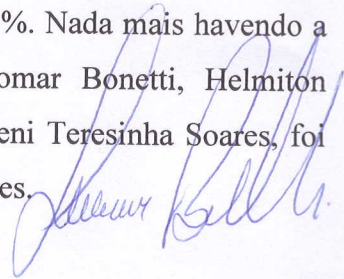 %. Nada mais havendo a
omar Bonetti, Helmiton
eni Teresinha Soares, foi
es.